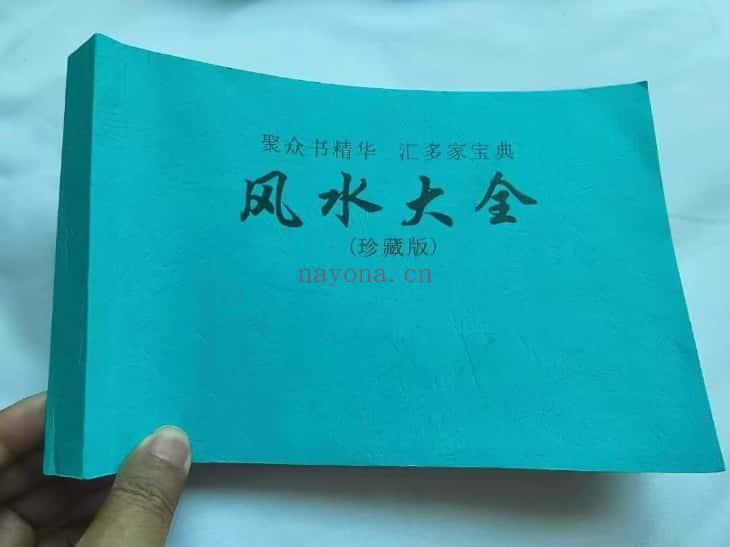 聚众书精华 汇多家宝典
风水大全
(珍藏版)
nayona.cn